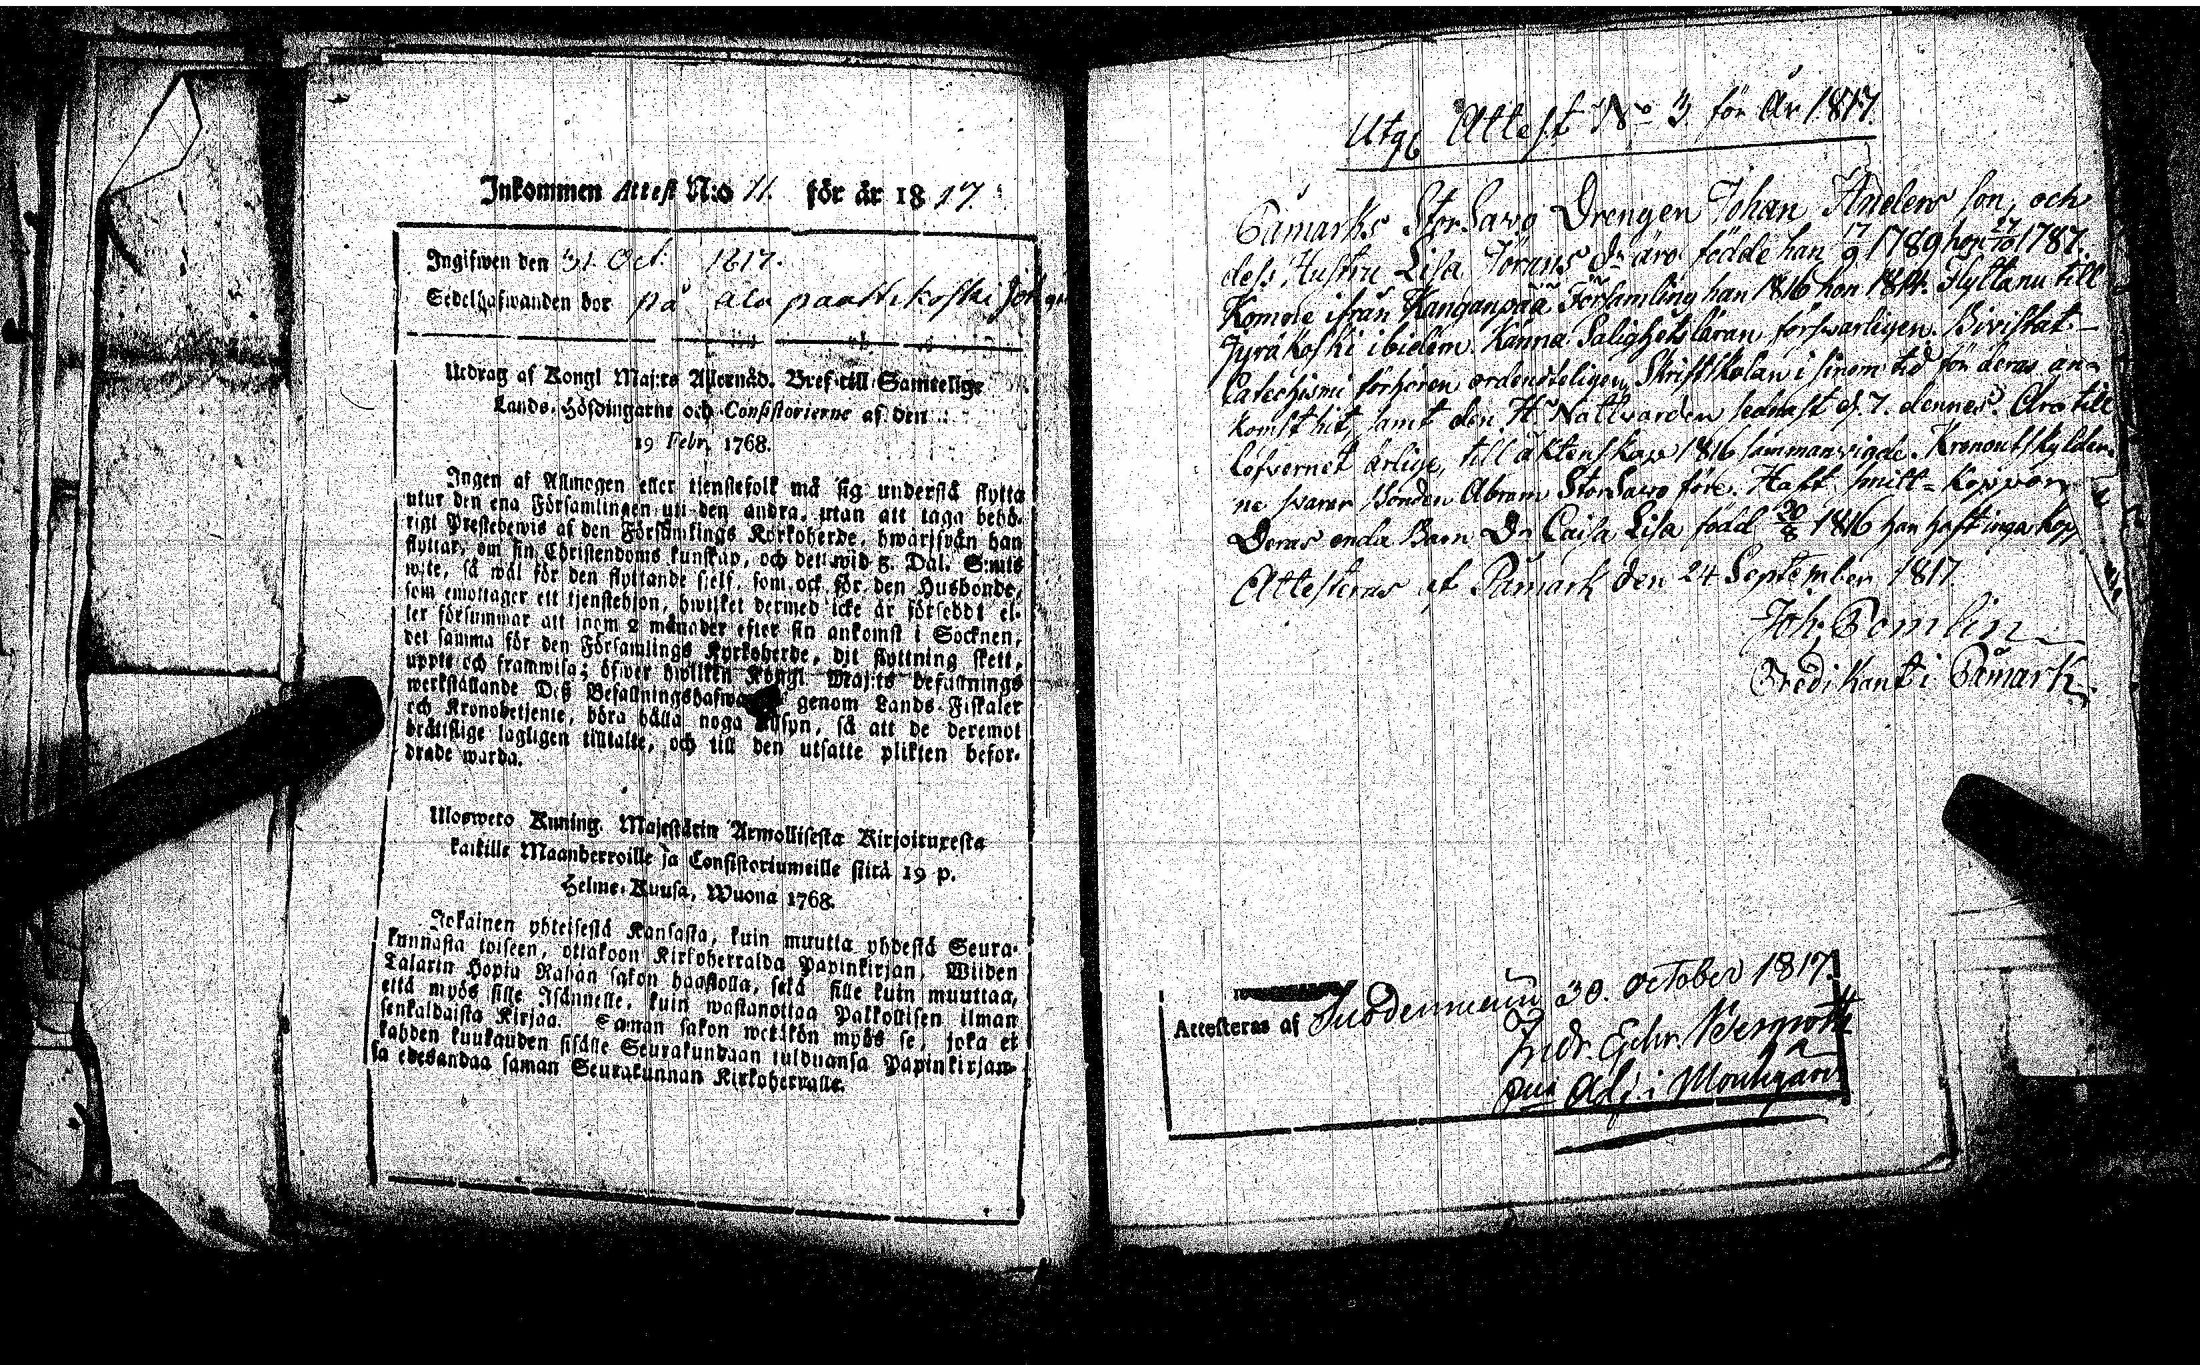 Inkommen Attest N:o 11. för år 1817.
Ingifwen den 31 Oct. 1817.
Sedelhafwanden bor på ala paattikoski
Utdrag af Kongl Maj:ts Allernåd. Bref till Samtelige
Lands-Höfdingarne och Consistorierne af den
19 Febr. 1768.
Ingen af Allmogen eller tjenstefolk må sig understå flytta
utur den ena Församlingen uti den andra, utan att taga behö-
rigt Prestebewis af den Församlings Kyrkoherde, hwarifrån han
flyttar, om sin Christendoms kunskap, och det wid 5. Dal. S:mts
wite, så wäl för den flyttande sielf, som ock för den Husbonde,
som emottager ett tjenstehjon, hwilket dermed icke är försedt el-
ler försummar att inom 2 månader efter sin ankomst i Socknen,
det samma för den Församlings Kyrkoherde, dit flyttning skett,
uppte och framwisa; öfwer hwilken Kongl Maj:ts befallnings
werkställande Deß Befallningshafwa genom Lands-Fiskaler
och Kronobetjente, böra hålla noga tillsyn, så att de deremot
bråttslige lagligen tilltalte, och till den utsatte plikten befor-
drade warda.
Ulosweto Kuning. Majestätin Armollisesta Kirjoituxesta
kaikille Maanherroille ja Consistoriumeille siitä 19 p.
Helme-Kuusa, Wuona 1768.
Jokainen yhteisestä Kansasta, kuin muutta yhdestä Seura-
kunnasta toiseen, ottakoon Kirkoherralda Papinkirjan, Wiiden
Talarin Hopia Rahan sakon haastolla, sekä sille kuin muuttaa,
että myös sille Isännelle, kuin wastanottaa Palkollisen ilman
senkaldaista Kirjaa. Saman sakon wetäkön myös se, joka ei
kahden kuukauden sisälle Seurakundaan tulduansa Papinkirjan-
sa edesandaa saman Seurakunnan Kirkoherralle.
Utg. Attest No 3 för År 1817
Påmarks StorSavo Drengen Johan Anders son, och
dess Hustru Lisa Jörans Dr äro födde han 17/9 1789 hon 27/10 1787.
Komne ifrån Kanganpää Församling han 1816 hon 1814. Flytta nu till
Jyräkoski ibidem. Känna Salighetsläran försvarligen. Bivistat
Catechismi förhören ordenteligen, Skriftskolan i sinom tid för deras an-
komst hit, samt den H. Nattvarden sednast d. 7. dennes. Äro till
lefvernet ärlige, till äktenskap 1816 sammanvigde. Kronoutskylder-
ne svarar Bonden Abram StorSavo före. Haft smitt-koppor
Deras enda Barn Dr Caisa Lisa född 20/8 1816 har haft inga kopp
Attesteras af Påmark den 24 September 1817
Joh. Pomlin
Predikant i Påmark
Attesteras af Suodenniemi 30. October 1817
Adj. i Mouhijärvi